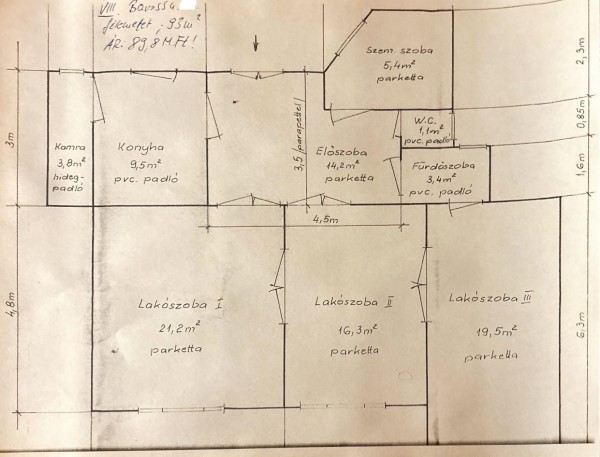 VIII. Baross u
félemelet, 93m²
ÁR: 89,8 M.Ft!
Szem. szoba
5,4m²
parketta
2,3m
W.C.
1,1m²
pvc. padló
0,85m
Kamra
3,8m²
hideg-
padló
Konyha
9,5m²
pvc. padló
3m
3,5 (parapettel)
Előszoba
14,2m²
parketta
Fürdőszoba
3,4m²
pvc. padló
1,6m
4,5m
Lakószoba I
21,2m²
parketta
4,8m
Lakószoba II
16,3m²
parketta
Lakószoba III
19,5m²
parketta
6,3m